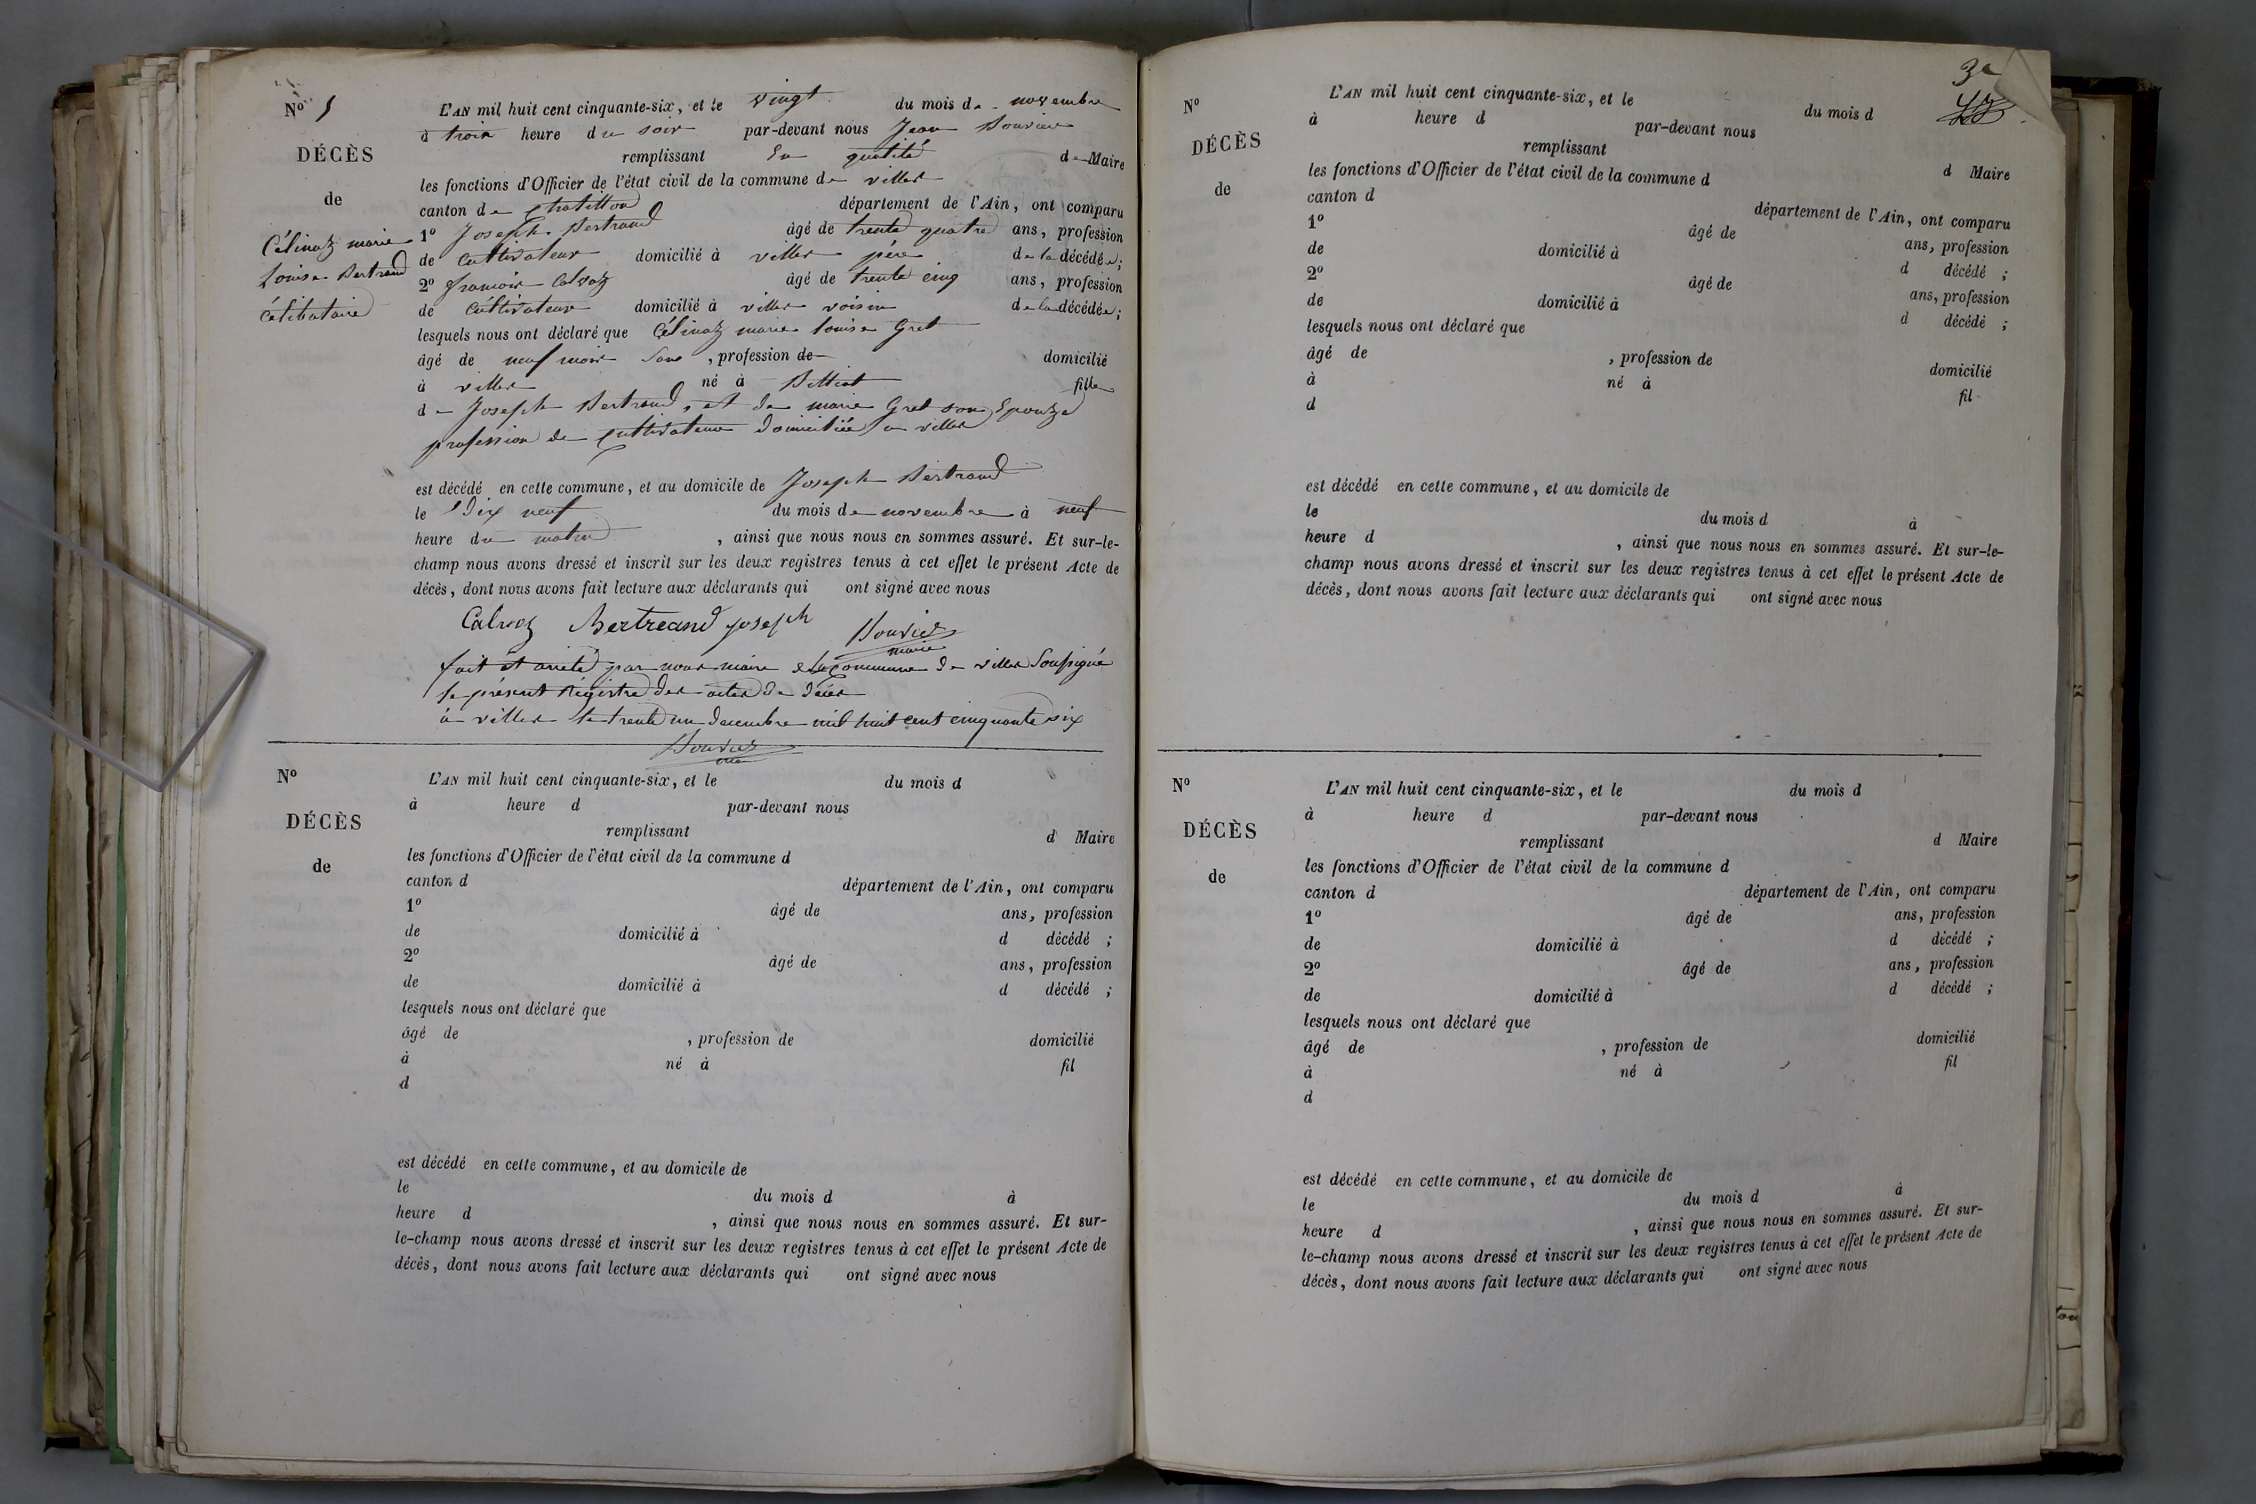 No 5
DÉCÈS
de
Célinaz marie
Louise Bertrand
célibataire
L'AN mil huit cent cinquante-six, et le vingt du mois de novembre
à trois heure du soir par-devant nous Jean Bouvier
remplissant En qualité de Maire
les fonctions d'Officier de l'état civil de la commune de villes
canton de chatillon département de l'Ain, ont comparu
1o Joseph Bertrand âgé de trente quatre ans, profession
de cultivateur domicilié à villes père de la décédée;
2o françois Calvoz âgé de trente cinq ans, profession
de cultivateur domicilié à villes voisin de la décédée;
lesquels nous ont déclaré que Célinaz marie louise Gret
âgé de neuf mois sans, profession de domicilié
à villes né à Billiat fille
de Joseph Bertrand, et de marie Gret son Epouze
profession de cultivateur domiciliée a villes
est décédé en cette commune, et au domicile de Joseph Bertrand
le dix neuf du mois de novembre à neuf
heure du matin, ainsi que nous nous en sommes assuré. Et sur-le-
champ nous avons dressé et inscrit sur les deux registres tenus à cet effet le présent Acte de
décès, dont nous avons fait lecture aux déclarants qui ont signé avec nous
Calvoz Bertreand joseph Bouvier
maire
fait et arrêté par nous maire de la commune de villes Soussigné
le présent Régistre des actes de décès
à villes le trente un decembre mil huit cent cinquante six
Bouvier
No
DÉCÈS
de
L'AN mil huit cent cinquante-six, et le du mois d
à heure d par-devant nous
remplissant d Maire
les fonctions d'Officier de l'état civil de la commune d
canton d département de l'Ain, ont comparu
1o âgé de ans, profession
de domicilié à d décédé ;
2o âgé de ans, profession
de domicilié à d décédé ;
lesquels nous ont déclaré que
âgé de , profession de domicilié
à né à fil
d
est décédé en cette commune, et au domicile de
le du mois d à
heure d , ainsi que nous nous en sommes assuré. Et sur-
le-champ nous avons dressé et inscrit sur les deux registres tenus à cet effet le présent Acte de
décès, dont nous avons fait lecture aux déclarants qui ont signé avec nous
No
DÉCÈS
de
L'AN mil huit cent cinquante-six, et le du mois d
à heure d par-devant nous
remplissant d Maire
les fonctions d'Officier de l'état civil de la commune d
canton d département de l'Ain, ont comparu
1o âgé de ans, profession
de domicilié à d décédé ;
2o âgé de ans, profession
de domicilié à d décédé ;
lesquels nous ont déclaré que
âgé de , profession de domicilié
à né à fil
d
est décédé en cette commune, et au domicile de
le du mois d à
heure d , ainsi que nous nous en sommes assuré. Et sur-le-
champ nous avons dressé et inscrit sur les deux registres tenus à cet effet le présent Acte de
décès, dont nous avons fait lecture aux déclarants qui ont signé avec nous
No
DÉCÈS
de
L'AN mil huit cent cinquante-six, et le du mois d
à heure d par-devant nous
remplissant d Maire
les fonctions d'Officier de l'état civil de la commune d
canton d département de l'Ain, ont comparu
1o âgé de ans, profession
de domicilié à d décédé ;
2o âgé de ans, profession
de domicilié à d décédé ;
lesquels nous ont déclaré que
âgé de , profession de domicilié
à né à fil
d
est décédé en cette commune, et au domicile de
le du mois d à
heure d , ainsi que nous nous en sommes assuré. Et sur-
le-champ nous avons dressé et inscrit sur les deux registres tenus à cet effet le présent Acte de
décès, dont nous avons fait lecture aux déclarants qui ont signé avec nous